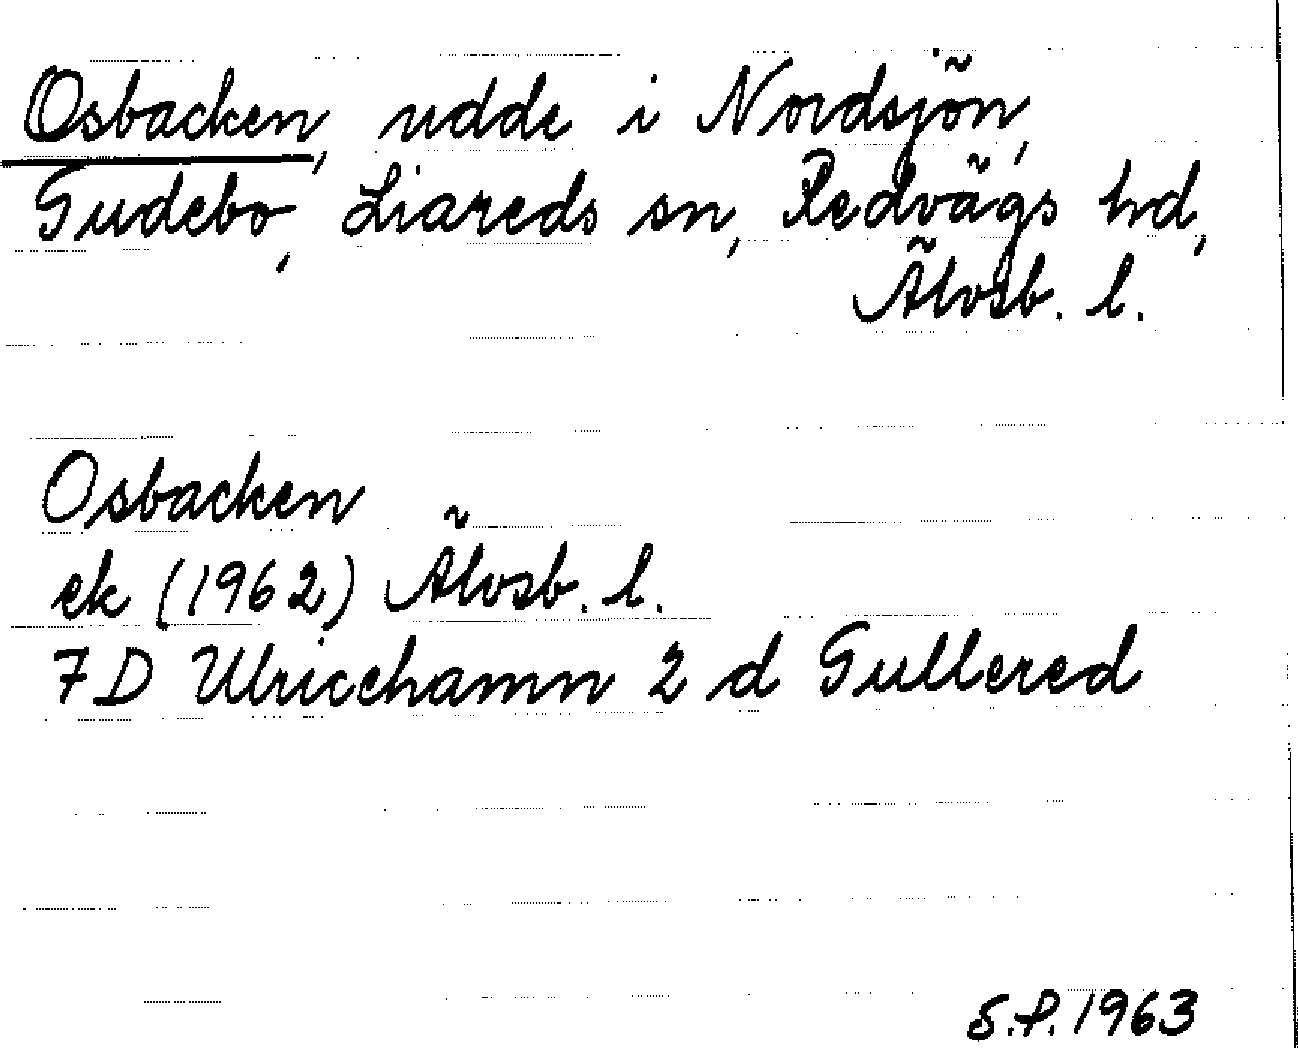 Osbacken, udde i Nordsjön,
Gudebo, Liareds sn, Redvägs hd,
Älvsb. l.
Osbacken
ek (1962) Älvsb. l.
7D Ulricehamn 2 d Gullered
S.P. 1963